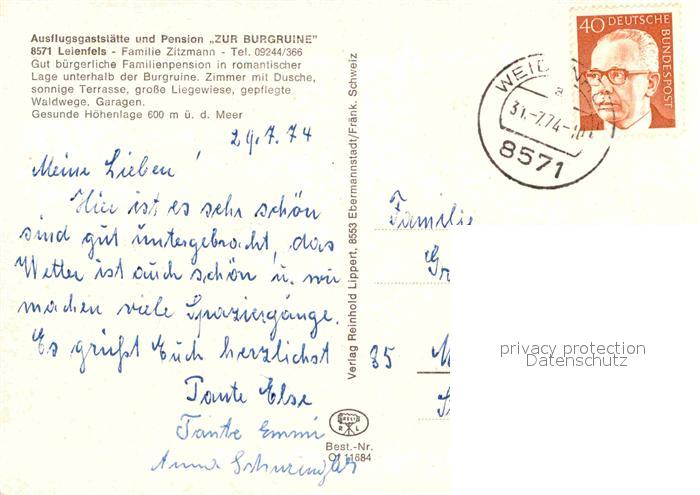 Ausflugsgaststätte und Pension „ZUR BURGRUINE"
8571 Leienfels - Familie Zitzmann - Tel. 09244/366
Gut bürgerliche Familienpension in romantischer
Lage unterhalb der Burgruine. Zimmer mit Dusche,
sonnige Terrasse, große Liegewiese, gepflegte
Waldwege. Garagen.
Gesunde Höhenlage 600 m ü. d. Meer
29.7.74
Meine Lieben!
Hier ist es sehr schön
sind gut untergebracht, das
Wetter ist auch schön u. wir
machen viele Spaziergänge.
Es grüßt Euch herzlichst
Tante Else
Tante Emmi
Anna
Verlag Reinhold Lippert, 8553 Ebermannstadt/Fränk. Schweiz
Best.-Nr.
O/11684
40 DEUTSCHE
BUNDESPOST
a
31.-7.74
8571
Familie
85
privacy protection
Datenschutz